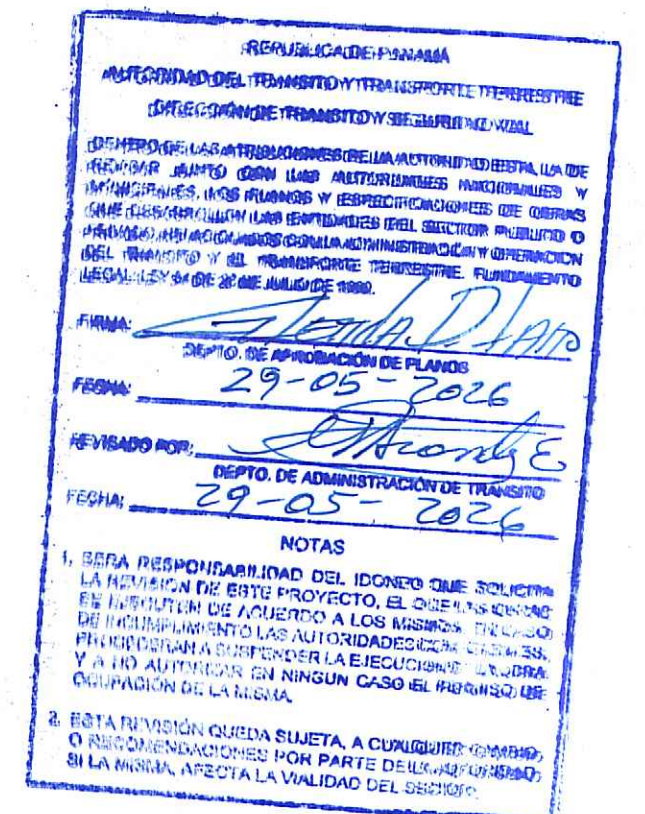 REPUBLICA DE PANAMÁ
AUTORIDAD DEL TRANSITO Y TRANSPORTE TERRESTRE
DIRECCIÓN DE TRANSITO Y SEGURIDAD VIAL
DENTRO DE LAS ATRIBUCIONES DE LA AUTORIDAD ESTA, LA DE
REVISAR JUNTO CON LAS AUTORIDADES NACIONALES Y
MUNICIPALES, LOS PLANOS Y ESPECIFICACIONES DE OBRAS
QUE DESARROLLEN LAS ENTIDADES DEL SECTOR PUBLICO O
PRIVADO, RELACIONADOS CON LA ADMINISTRACIÓN Y OPERACIÓN
DEL TRANSITO Y EL TRANSPORTE TERRESTRE. FUNDAMENTO
LEGAL: LEY 34 DE 28 DE JULIO DE 1999.
FIRMA:
DEPTO. DE APROBACIÓN DE PLANOS
FECHA: 29-05-2026
REVISADO POR:
DEPTO. DE ADMINISTRACIÓN DE TRANSITO
FECHA: 29-05-2026
NOTAS
1. SERA RESPONSABILIDAD DEL IDONEO QUE SOLICITA
LA REVISION DE ESTE PROYECTO, EL QUE LAS OBRAS
SE EJECUTEN DE ACUERDO A LOS MISMOS. EN CASO
DE INCUMPLIMIENTO LAS AUTORIDADES
PROCEDERAN A SUSPENDER LA EJECUCION OBRA
Y A NO AUTORIZAR EN NINGUN CASO EL PERMISO DE
OCUPACIÓN DE LA MISMA.
2. ESTA REVISIÓN QUEDA SUJETA, A CUALQUIER CAMBIO,
O RECOMENDACIONES POR PARTE DE LA AUTORIDAD,
SI LA MISMA, AFECTA LA VIALIDAD DEL SECTOR.